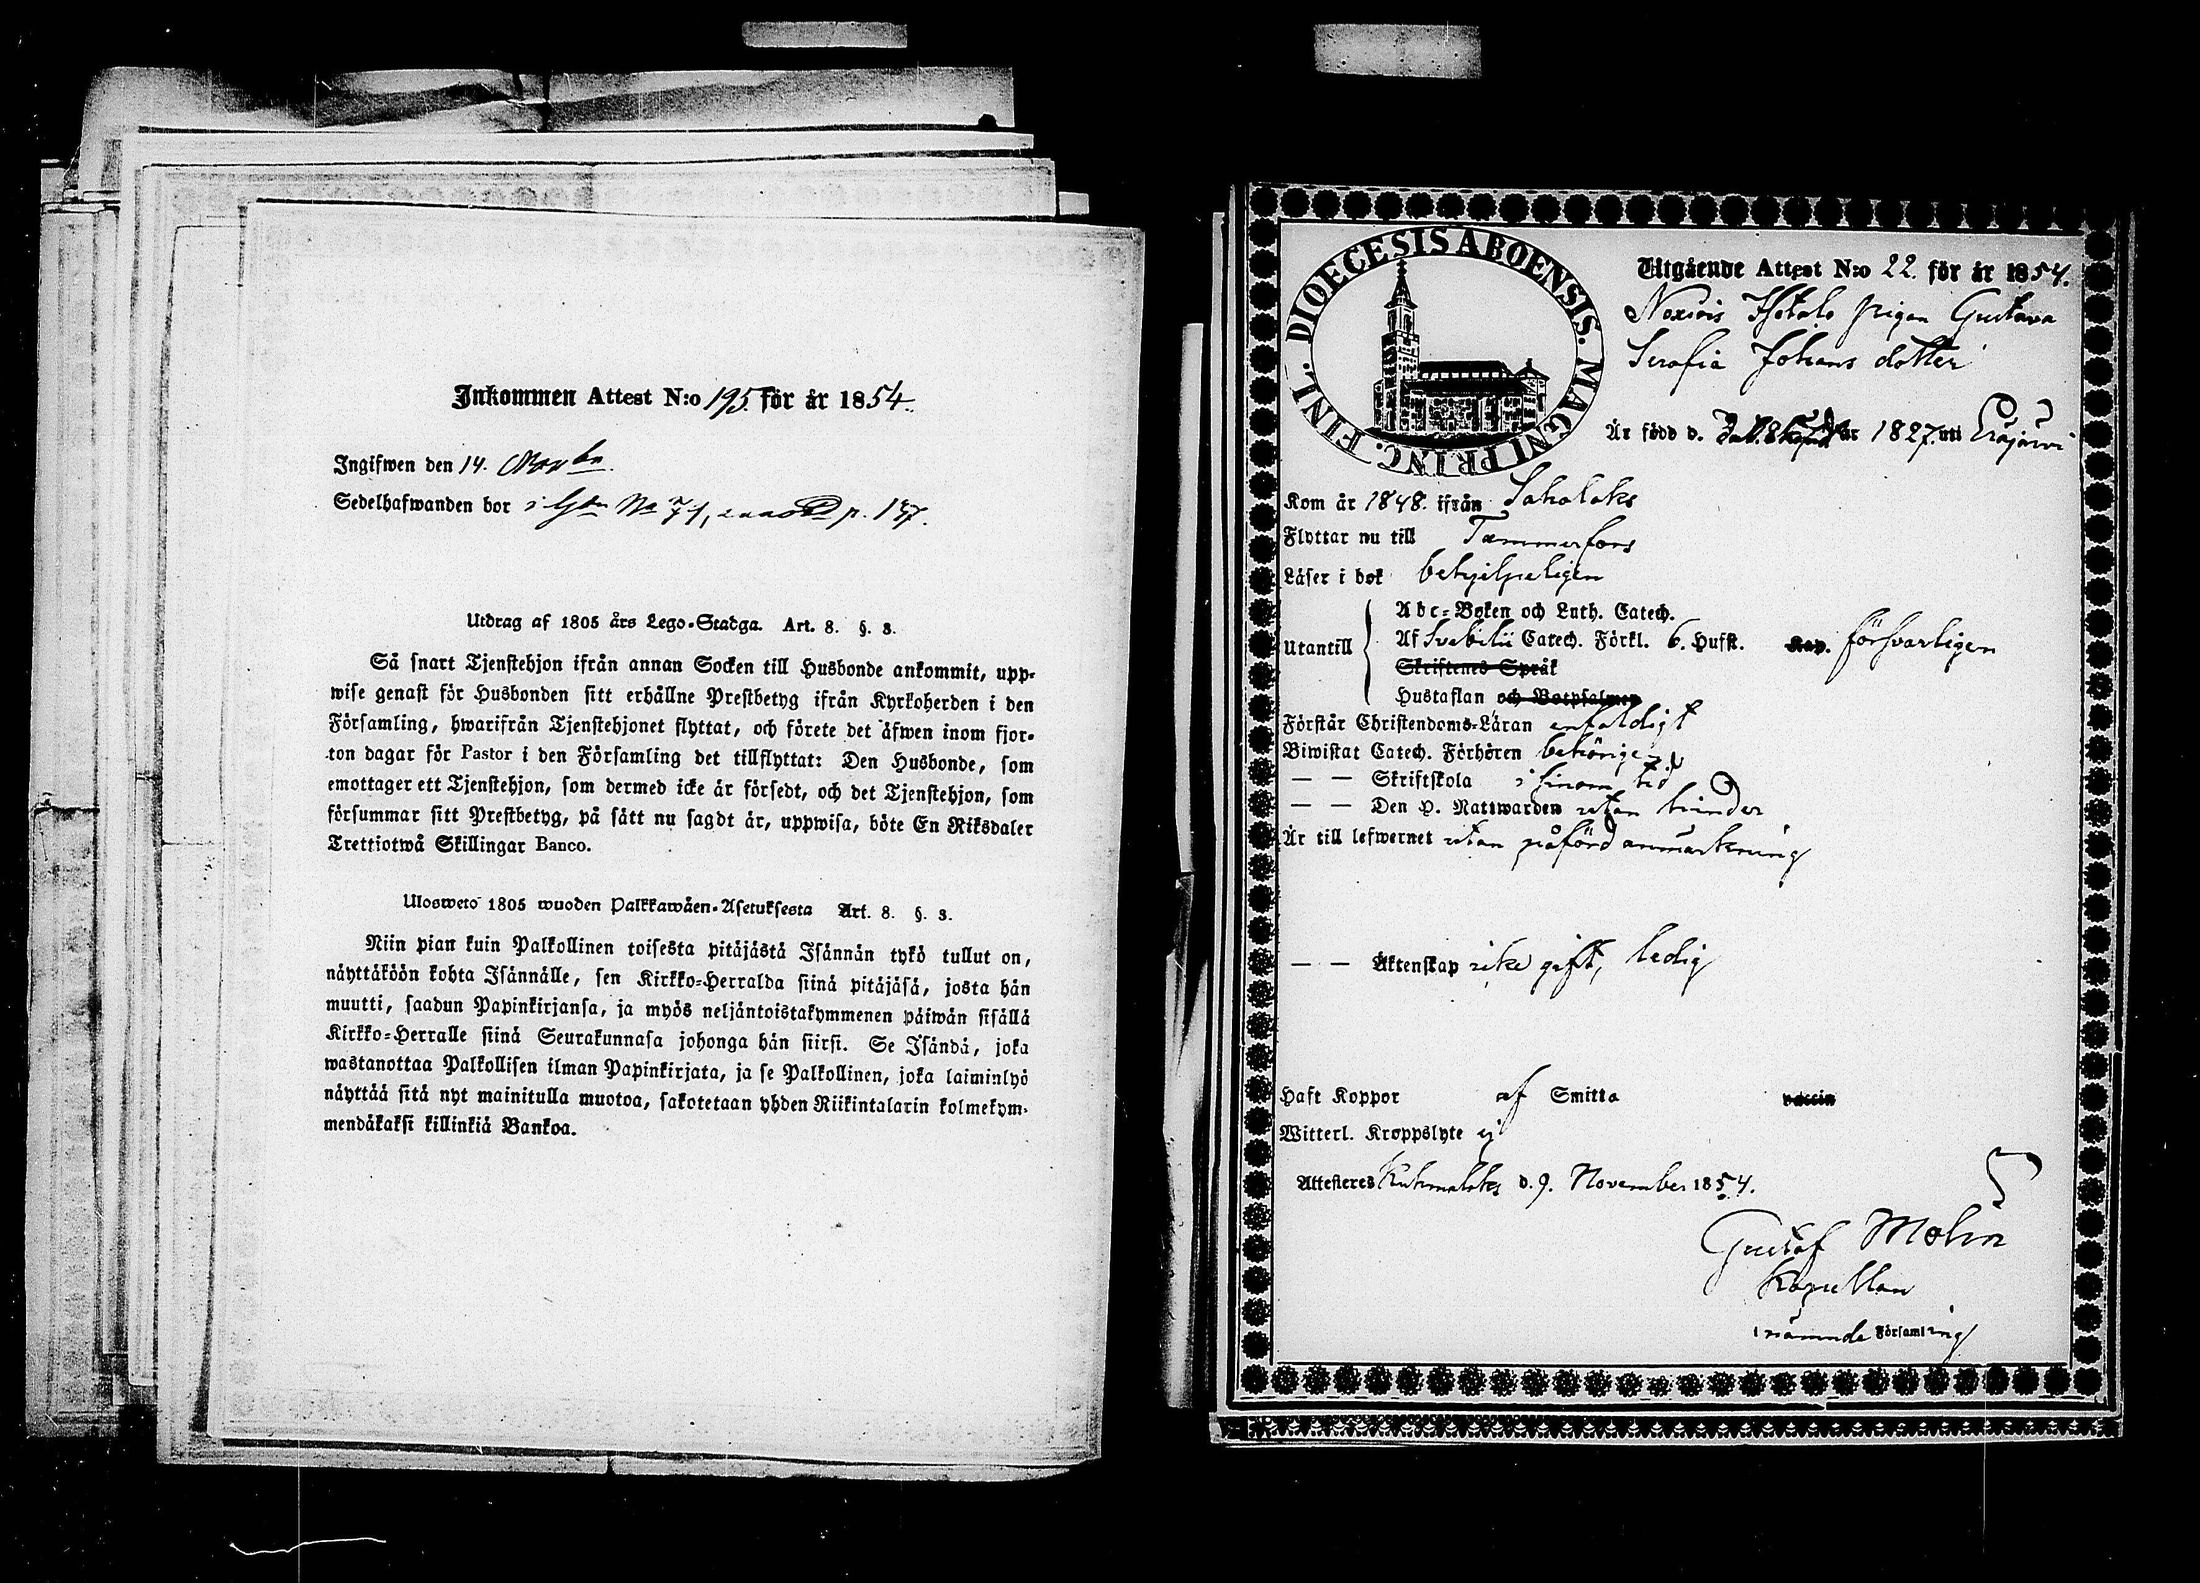 Inkommen Attest N:o 195. för år 1854.
Ingifwen den 14. Novbr.
Sedelhafwanden bor i No 71, p. 137.
Utdrag af 1805 års Lego-Stadga. Art. 8. §. 3.
Så snart Tjenstehjon ifrån annan Socken till Husbonde ankommit, upp-
wise genast för Husbonden sitt erhållne Prestbetyg ifrån Kyrkoherden i den
Församling, hwarifrån Tjenstehjonet flyttat, och förete det äfwen inom fjor-
ton dagar för Pastor i den Församling det tillflyttat: Den Husbonde, som
emottager ett Tjenstehjon, som dermed icke är försedt, och det Tjenstehjon, som
försummar sitt Prestbetyg, på sätt nu sagdt är, uppwisa, böte En Riksdaler
Trettiotwå Skillingar Banco.
Ulosweto 1805 wuoden Palkkawäen-Asetuksesta Art. 8. §. 3.
Niin pian kuin Palkollinen toisesta pitäjästä Isännän tykö tullut on,
näyttäköön kohta Isännälle, sen Kirkko-Herralda siinä pitäjäsä, josta hän
muutti, saadun Papinkirjansa, ja myös neljäntoistakymmenen päiwän sisällä
Kirkko-Herralle siinä Seurakunnasa johonga hän siirsi. Se Isändä, joka
wastanottaa Palkollisen ilman Papinkirjata, ja se Palkollinen, joka laiminlyö
näyttää sitä nyt mainitulla muotoa, sakotetaan yhden Riikintalarin kolmekym-
mendäkaksi killinkiä Bankoa.
FINL. DIOECESIS ABOENSIS. MAGNI PRINC.
Utgående Attest N:o 22. för år 1854.
pigan Gustava
Serafia Johans dotter
Är född d. år 1827. uti Eräjärvi
Kom år 1848. ifrån Sahalaks
Flyttar nu till Tammerfors
Läser i bok behjelpeligen
Abc-Boken och Luth. Catech.
Utantill Af Svebilii Catech. Förkl. 6. Hufst. Kap. försvarligen
Skriftenes Språk
Hustaflan och Botpsalmen
Förstår Christendoms-Läran enfaldigt
Biwistat Catech. Förhören behörigen
— — Skriftskola i sinom tid
— — Den H. Nattwarden utan hinder
Är till lefwernet utan påförd anmärkning
— — Äktenskap icke gift, ledig
Haft Koppor af Smitta vaccin
Witterl. Kroppslyte ej
Attesteres Kuhmalaks d. 9. November 1854.
Gustaf Molin
Kapellan
i nämnde Församling